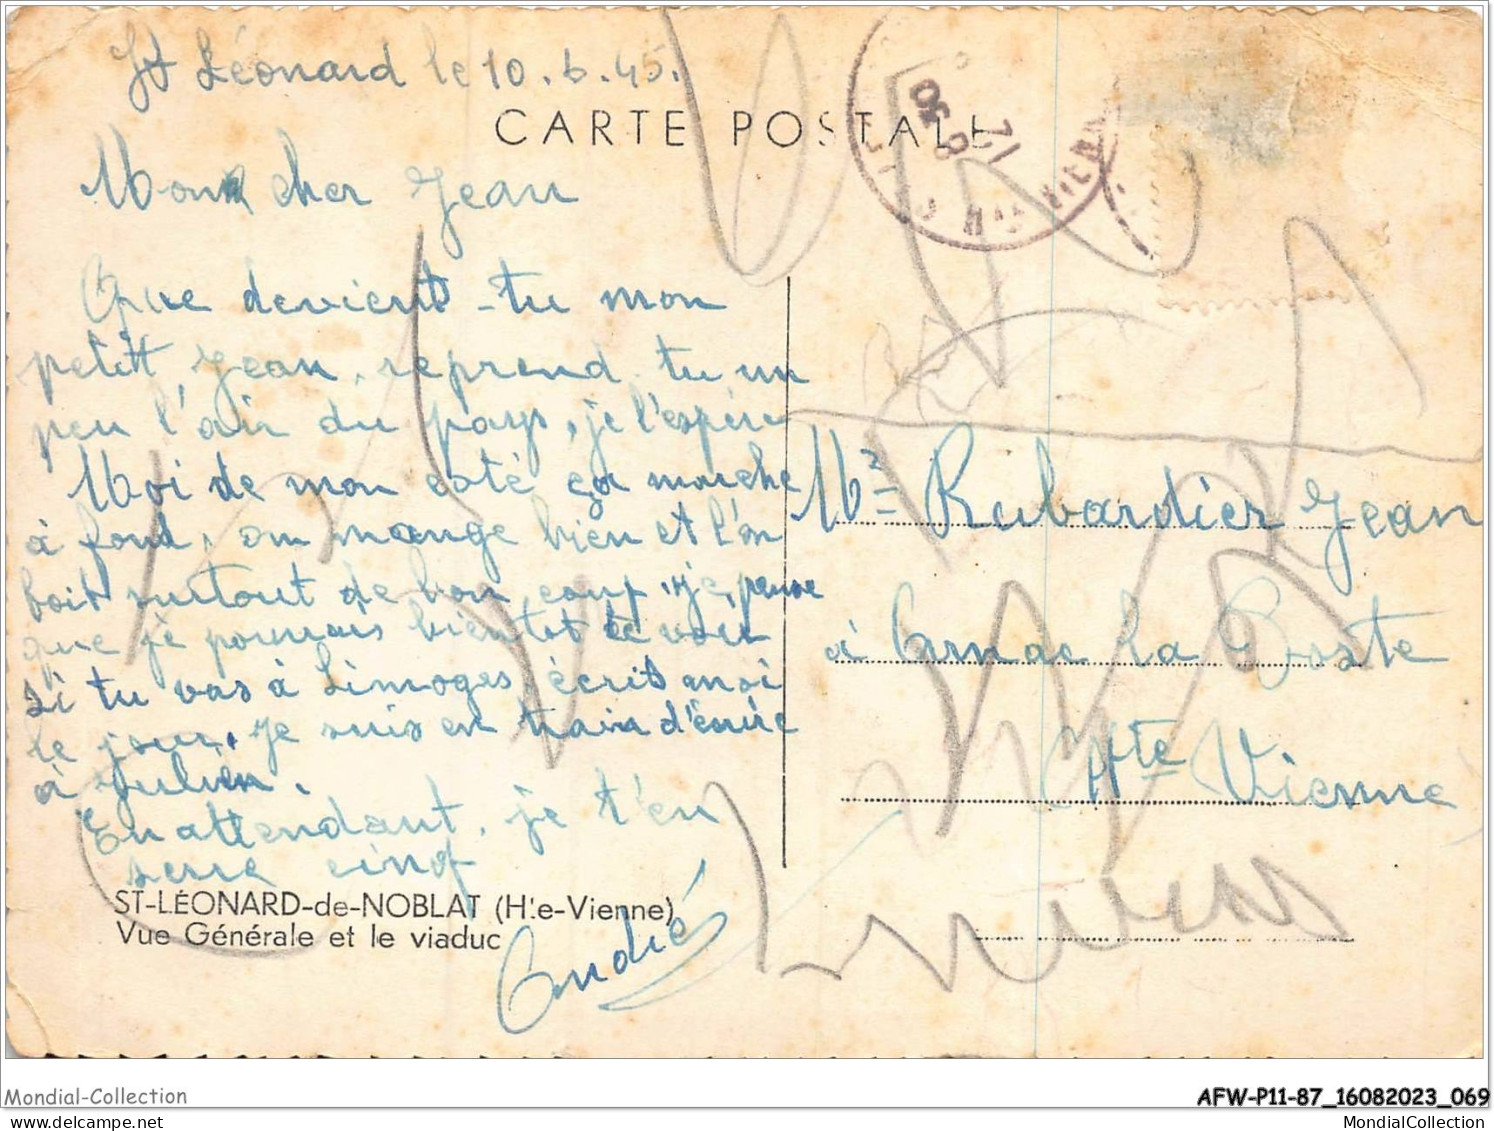 St Léonard le 10.6.45.
CARTE POSTALE
Mon cher Jean
Que devient-tu mon
petitt Jean, reprend tu un
peu l'air du pays, je l'espère
Moi de mon coté ça marche
à fond, on mange bien et l'on
boit surtout de bon coup, je pense
que je pourrais bientot te voir
si tu vas à Limoges, écrit moi
le jour, je suis en train d'écrire
à Julien.
En attendant, je t'en
serre cinq
André
ST-LÉONARD-de-NOBLAT (Hte-Vienne)
Vue Générale et le viaduc
Mr Rubardier Jean
à Arnac La Poste
Hte Vienne
Mondial-Collection
AFW-P11-87_16082023_069
Mondial Collection
MondialCollection